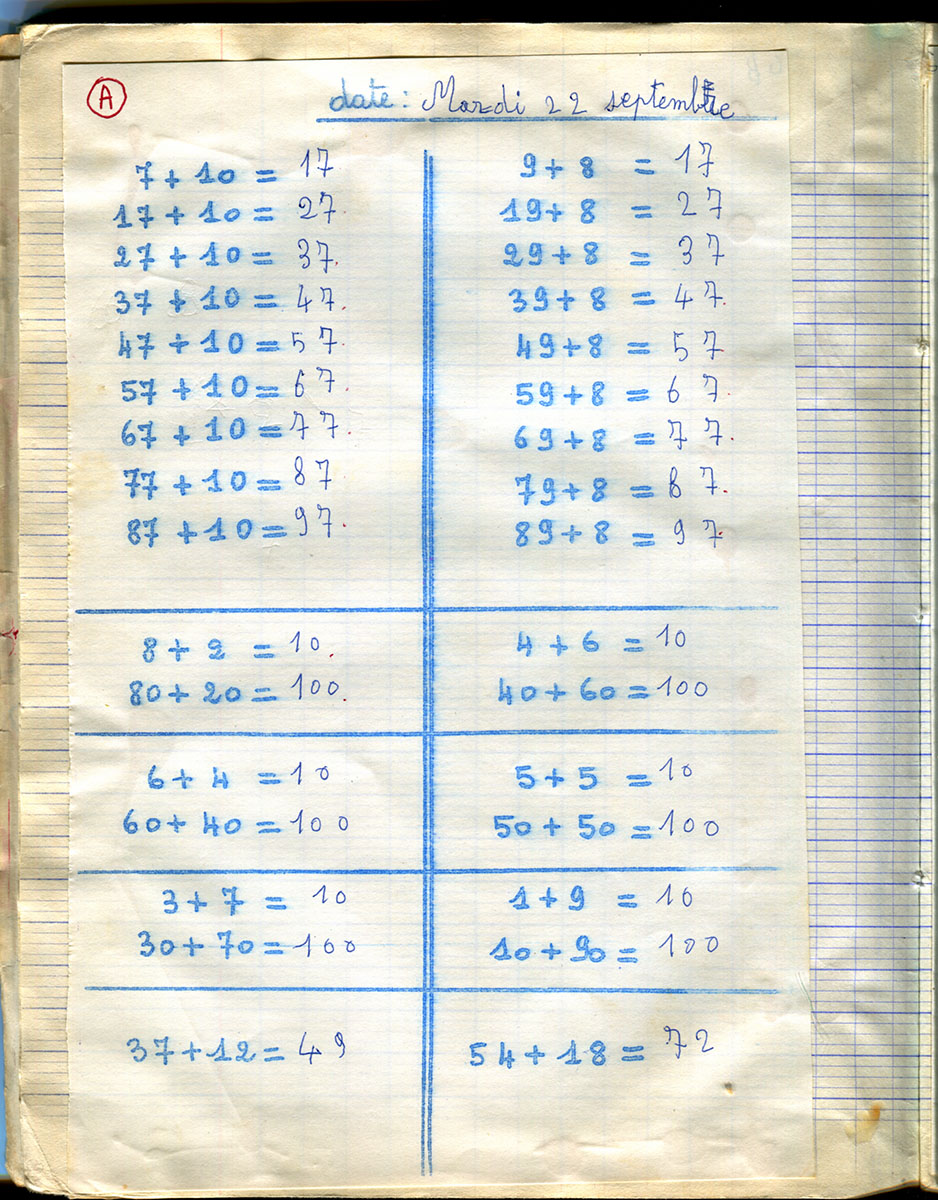 A
date: Mardi 22 septembre
7 + 10 = 17
17 + 10 = 27
27 + 10 = 37
37 + 10 = 47
47 + 10 = 57
57 + 10 = 67
67 + 10 = 77
77 + 10 = 87
87 + 10 = 97
9 + 8 = 17
19 + 8 = 27
29 + 8 = 37
39 + 8 = 47
49 + 8 = 57
59 + 8 = 67
69 + 8 = 77
79 + 8 = 87
89 + 8 = 97
8 + 2 = 10
80 + 20 = 100
4 + 6 = 10
40 + 60 = 100
6 + 4 = 10
60 + 40 = 100
5 + 5 = 10
50 + 50 = 100
3 + 7 = 10
30 + 70 = 100
1 + 9 = 10
10 + 90 = 100
37 + 12 = 49
54 + 18 = 72